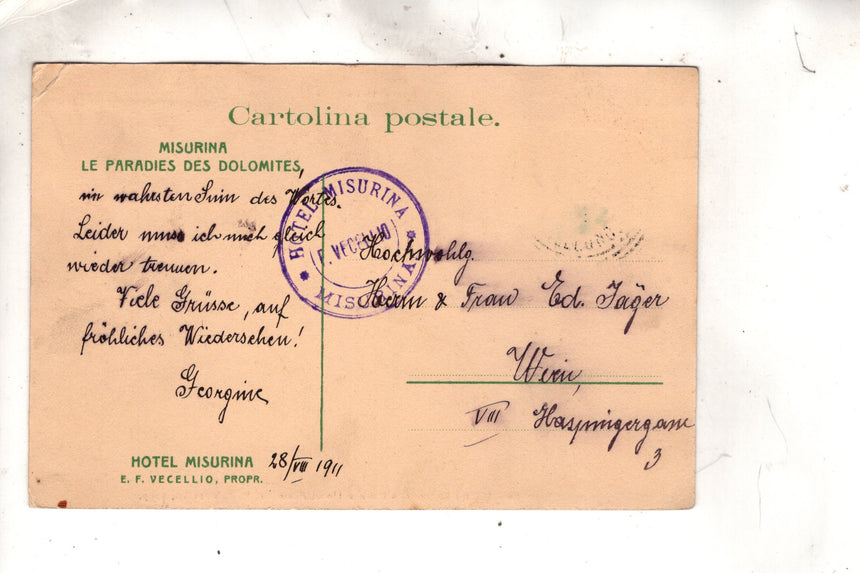 Cartolina postale.
MISURINA
LE PARADIES DES DOLOMITES,
im wahrsten Sinn des Wortes.
Leider muss ich mich gleich
wieder trennen.
Viele Grüsse, auf
fröhliches Wiedersehen!
Georgine
HOTEL MISURINA
E. F. VECELLIO, PROPR.
28/VIII 1911
HOTEL MISURINA
F. VECELLIO
MISURINA
Hochwohlg.
Herrn & Frau Ed. Jäger
Wien,
VIII Haspingergasse
3